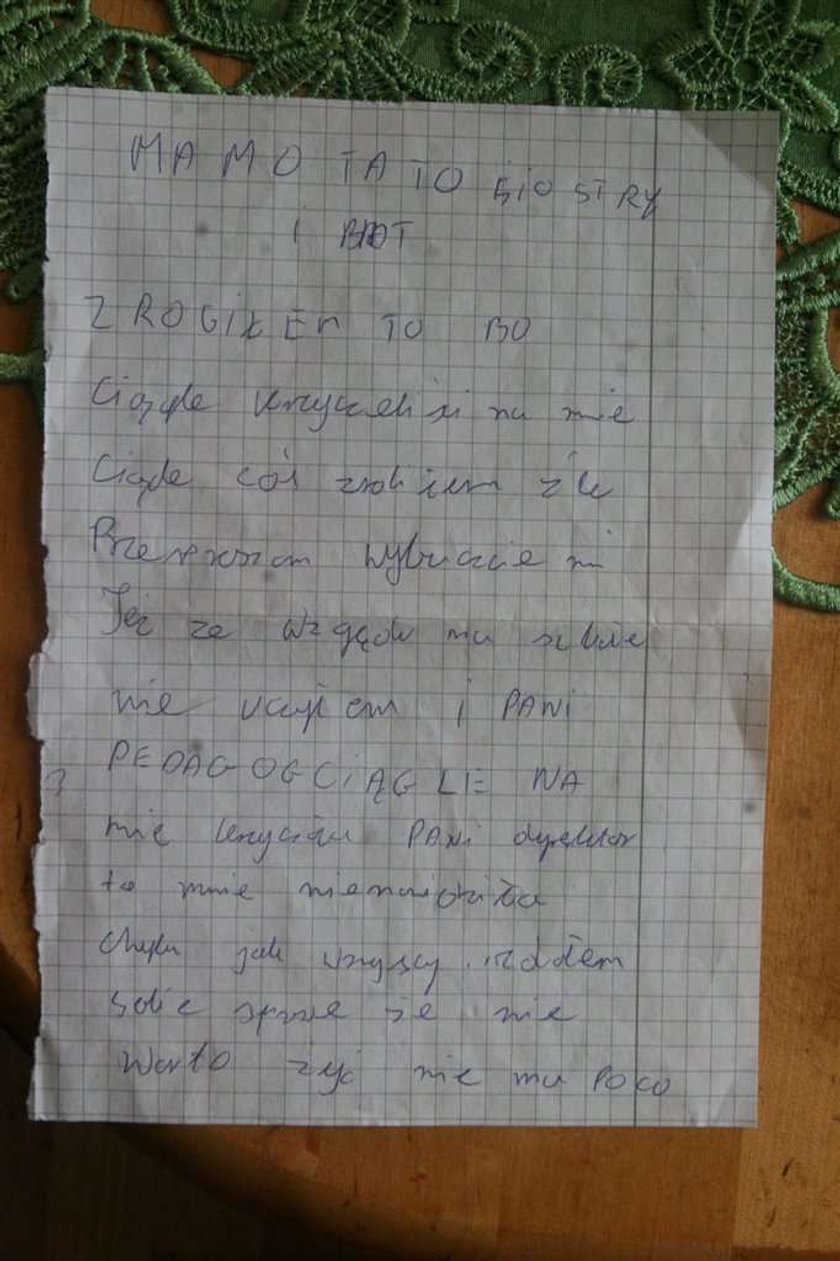 MAMO TATO SIOSTRY
i BROT
ZROBIŁEM TO BO
Ciągle krzyczeliści na mie
Ciągle coś zrobiłem źle
Przepraszam wybaczcie mi
Też ze względu na siebie
nie uczyłem i PANI
PEDAGOG CIĄGLE NA
mie krzyczała PANi dyrektor
to mnie nienawidziła
chyba jak wszyscy zdałem
sobie sprawe że nie
warto żyć nie ma POCO